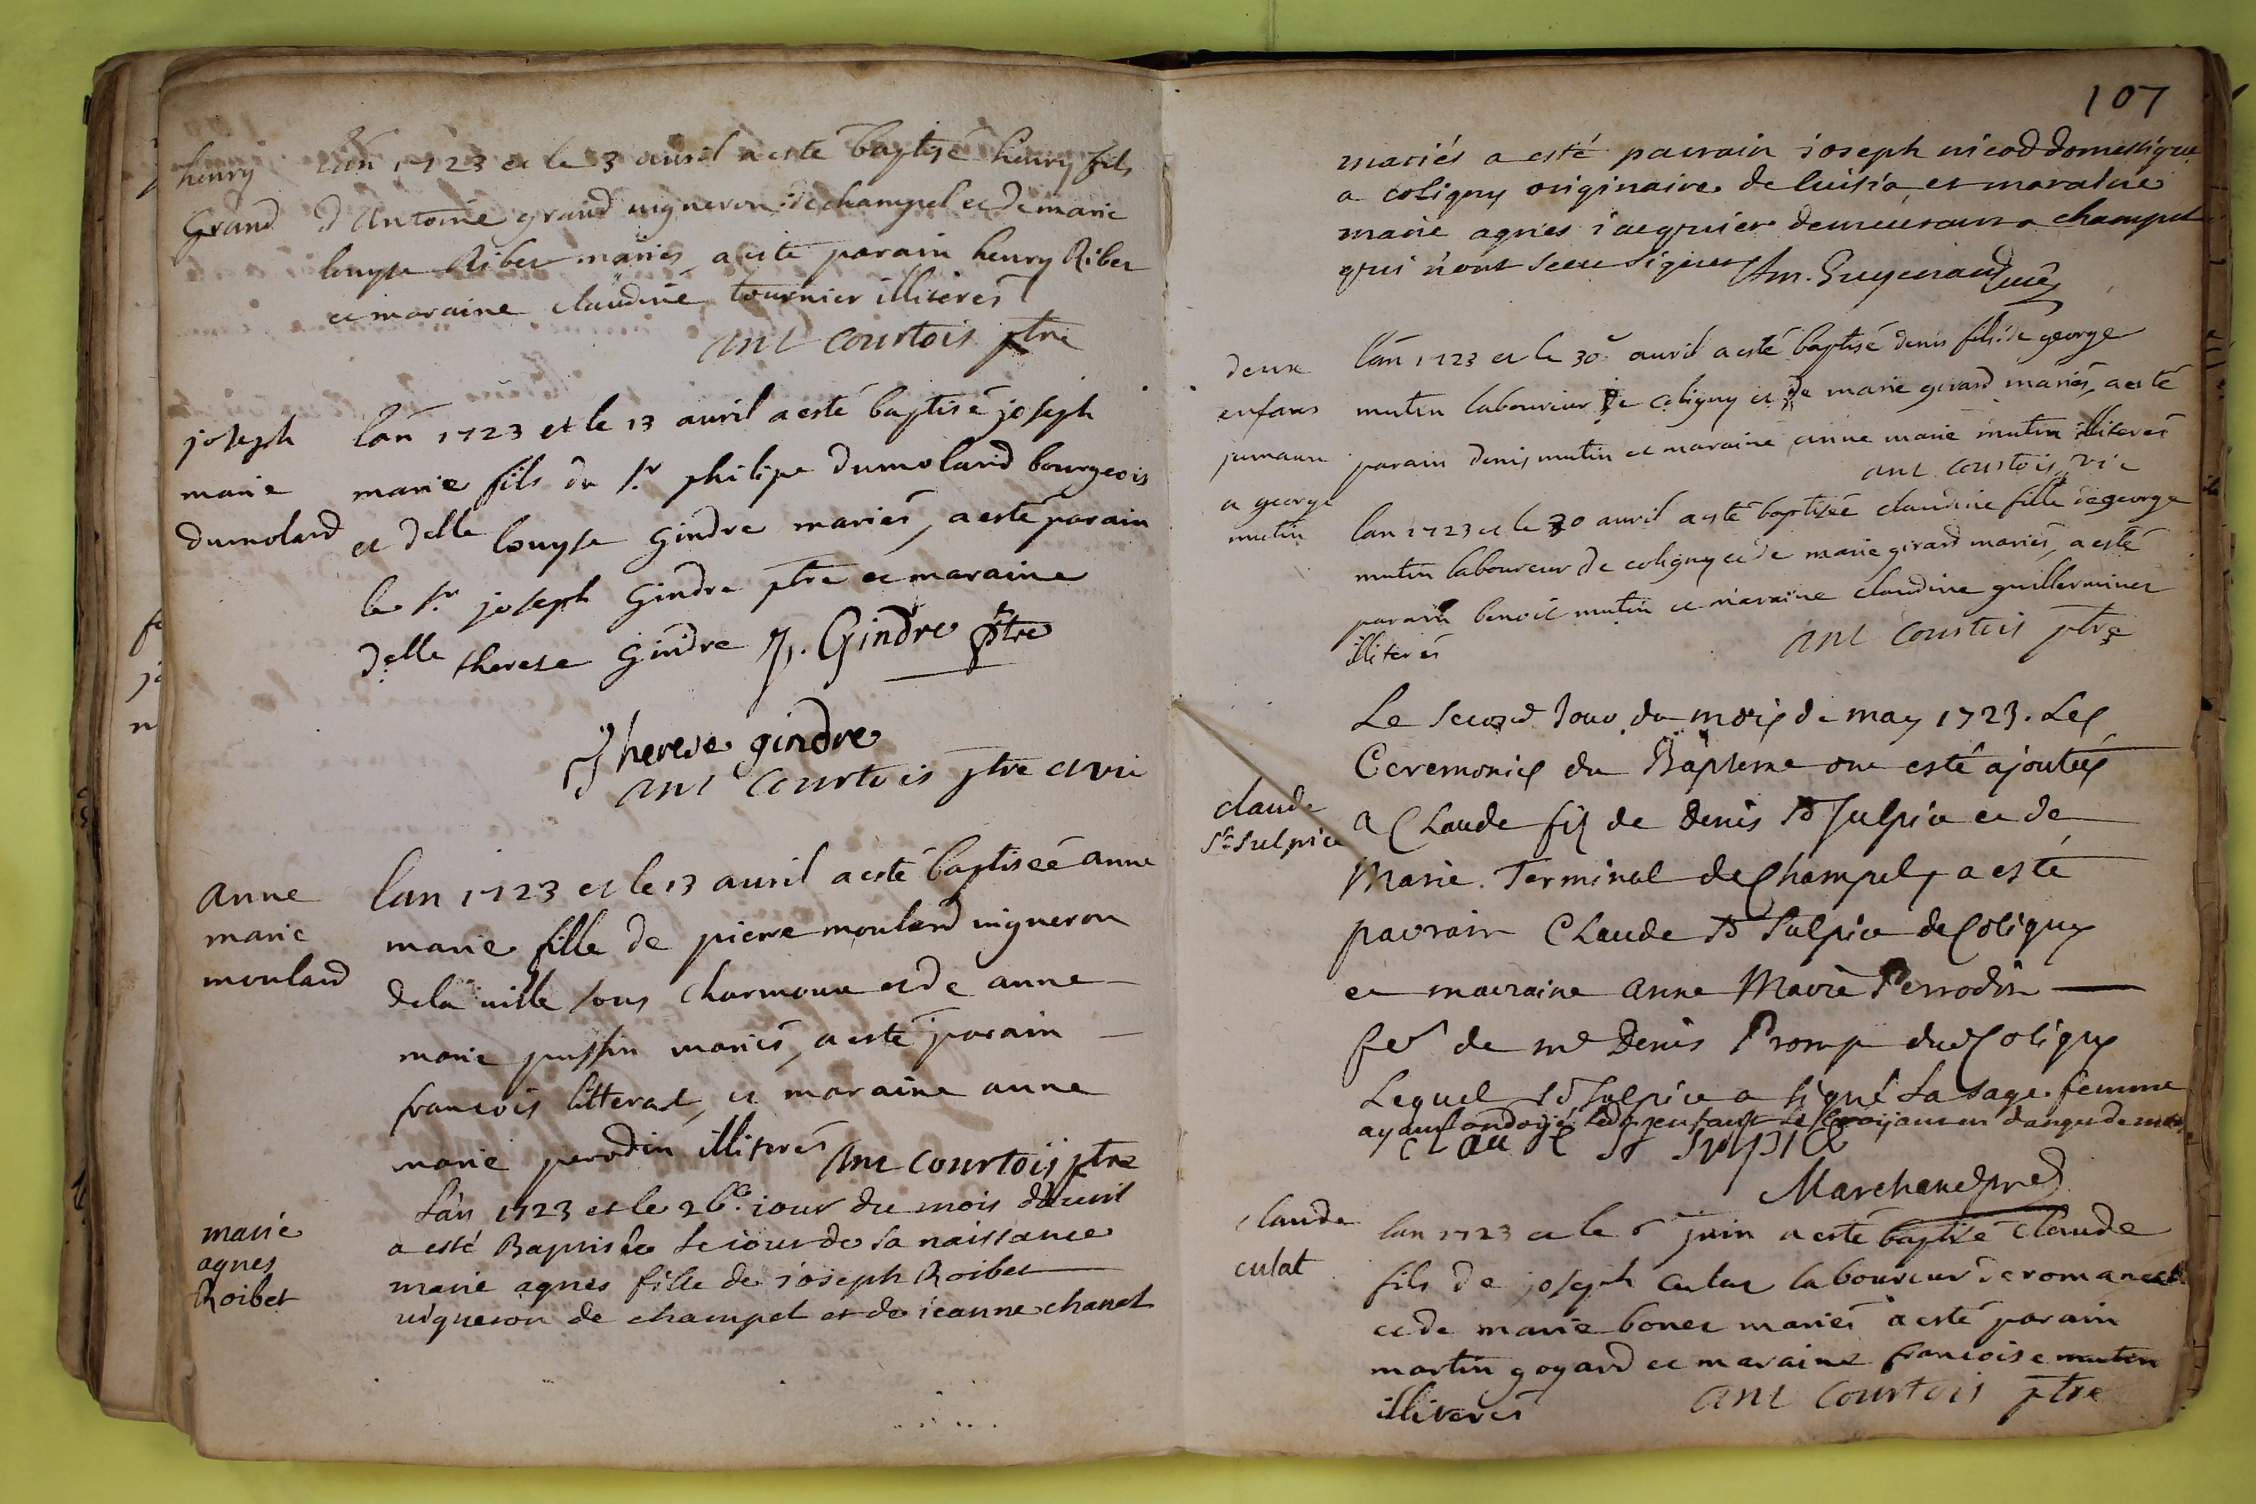 henry
Grand
lan 1723 et le 3 avril a esté baptisé henry fils
d'Antoine grand vigneron de champel et de marie
louyse Ribet mariés, a esté parain henry Ribet
et maraine claudine tournier illiterés
ant courtois ptre
joseph
marie
dumolard
lan 1723 et le 13 avril a esté baptisé joseph
marie fils du sr philipe dumolard bourgeois
et delle louyse Gindre mariés, a esté parain
le sr joseph Gindre ptre et maraine
delle therese Gindre J. Gindre ptre
Therese gindre
ant Courtois ptre
anne
marie
moulard
lan 1723 et le 13 avril a esté baptiseé anne
marie fille de pierre moulard vigneron
de la ville sous charmoux et de anne
marie puffin mariés, a esté parain
francois litteral, et maraine anne
marie perodin illiterés ant Courtois ptre
marie
agnes
Roibet
L'an 1723 et le 26e iour du mois d'avril
a esté Baptisée le iour de sa naissance
marie agnes fille de ioseph Roibet
vigneron de champel et de ieanne chanel
107
mariés a esté parrain ioseph nicod domestique
a coligny originaire de luisia et maraine
marie agnes iacquier demeurant a champel
qui n'ont sceu signer Am. Guyenard curé
deux
enfans
jumaux
a george
mutin
lan 1723 et le 30e avril a esté baptisé denis fils de george
mutin laboureur de coligny et de marie girard mariés, a esté
parain denis mutin et maraine anne marie mutin illiterés
ant courtois vic
lan 1723 et le 30 avril a esté baptisée claudine fille de george
mutin laboureur de coligny et de marie girard mariés, a esté
parain benoit mutin et maraine claudine guillerminet
illiterés
ant Courtois ptre
claude
St Sulpice
Le second Jour du mois de may 1723. Les
Ceremonies du Baptesme ont esté ajoutées
a Claude fils de Denis St Sulpice et de
Marie Terminal de Champel, a esté
parrain Claude St Sulpice de Coligny
et marraine Anne Marie Perrodin
fe de me Denis Promp dud Coligny
Lequel St Sulpice a signé La sage femme
ayant ondoyé led enfant danger de mort
Claude St Sulpice
Marchand
claude
culat
lan 1723 et le 6 juin a esté baptisé Claude
fils de joseph culat laboureur de
et de marie bonet mariés a esté parain
martin goyard et maraine francoise mutin
illiterés
ant Courtois ptre